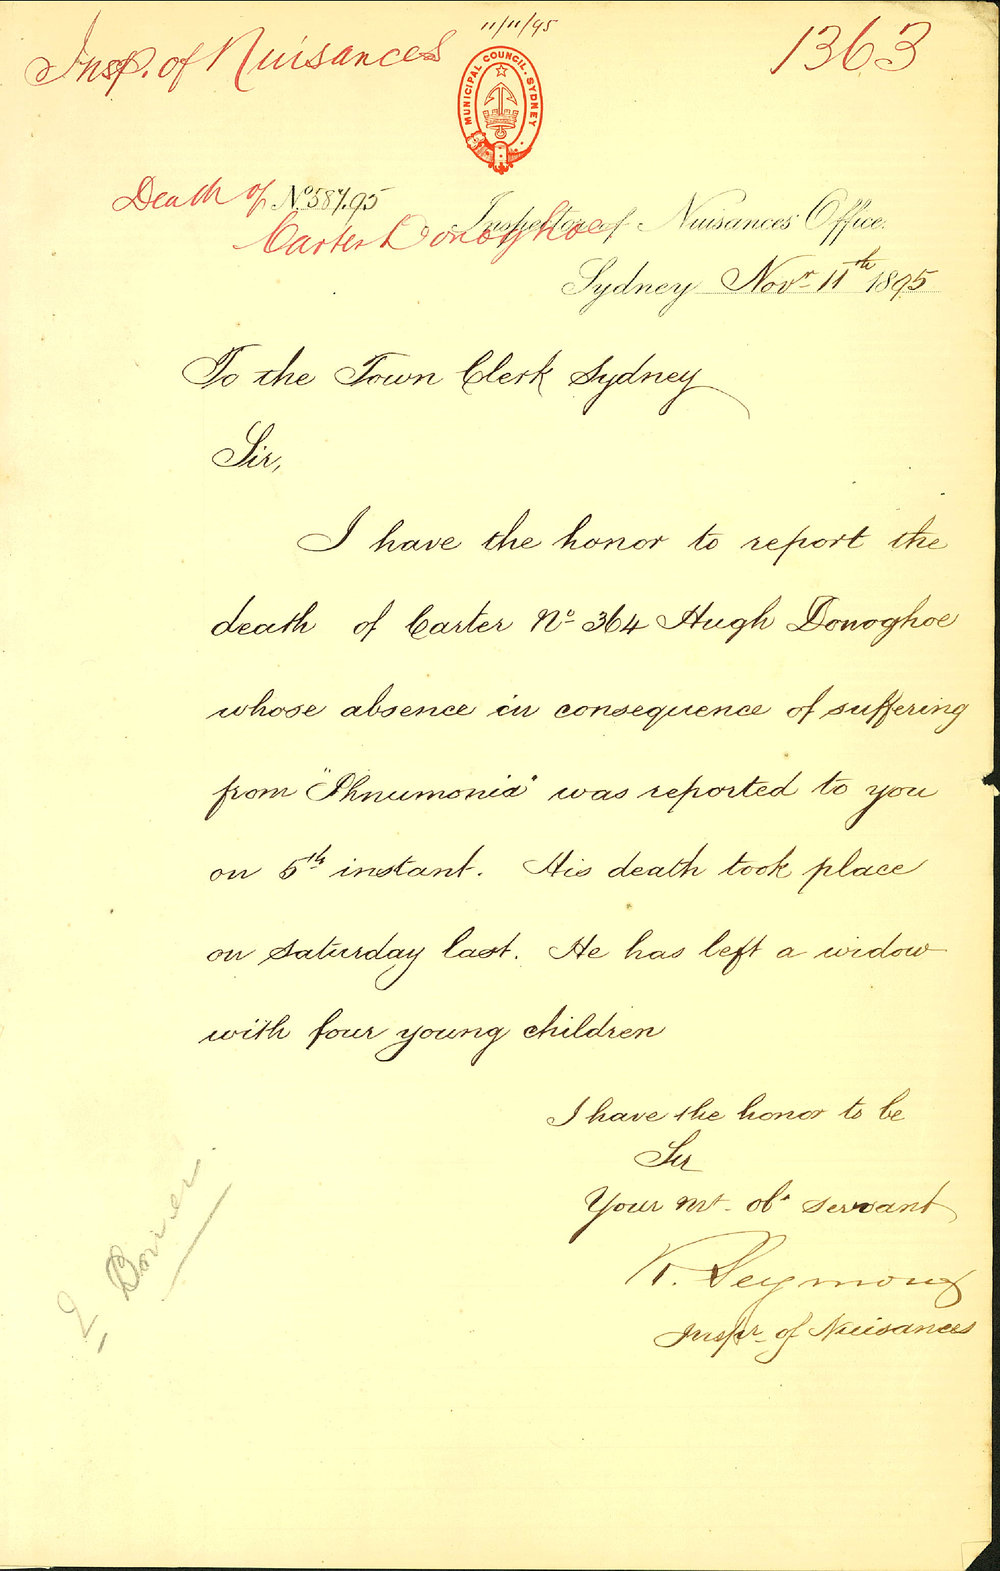 11/11/95
Insp. of Nuisances
1363
MUNICIPAL COUNCIL. SYDNEY
Death of
No. 587.95
Carter Donoghoe
Inspector of Nuisances Office.
Sydney Novr 11th 1895
To the Town Clerk Sydney
Sir,
I have the honor to report the
death of Carter No 364 Hugh Donoghoe
whose absence in consequence of suffering
from "Phnumonia" was reported to you
on 5th instant. His death took place
on Saturday last. He has left a widow
with four young children
I have the honor to be
Sir
Your mt. obt servant
Seymour
Inspr. of Nuisances